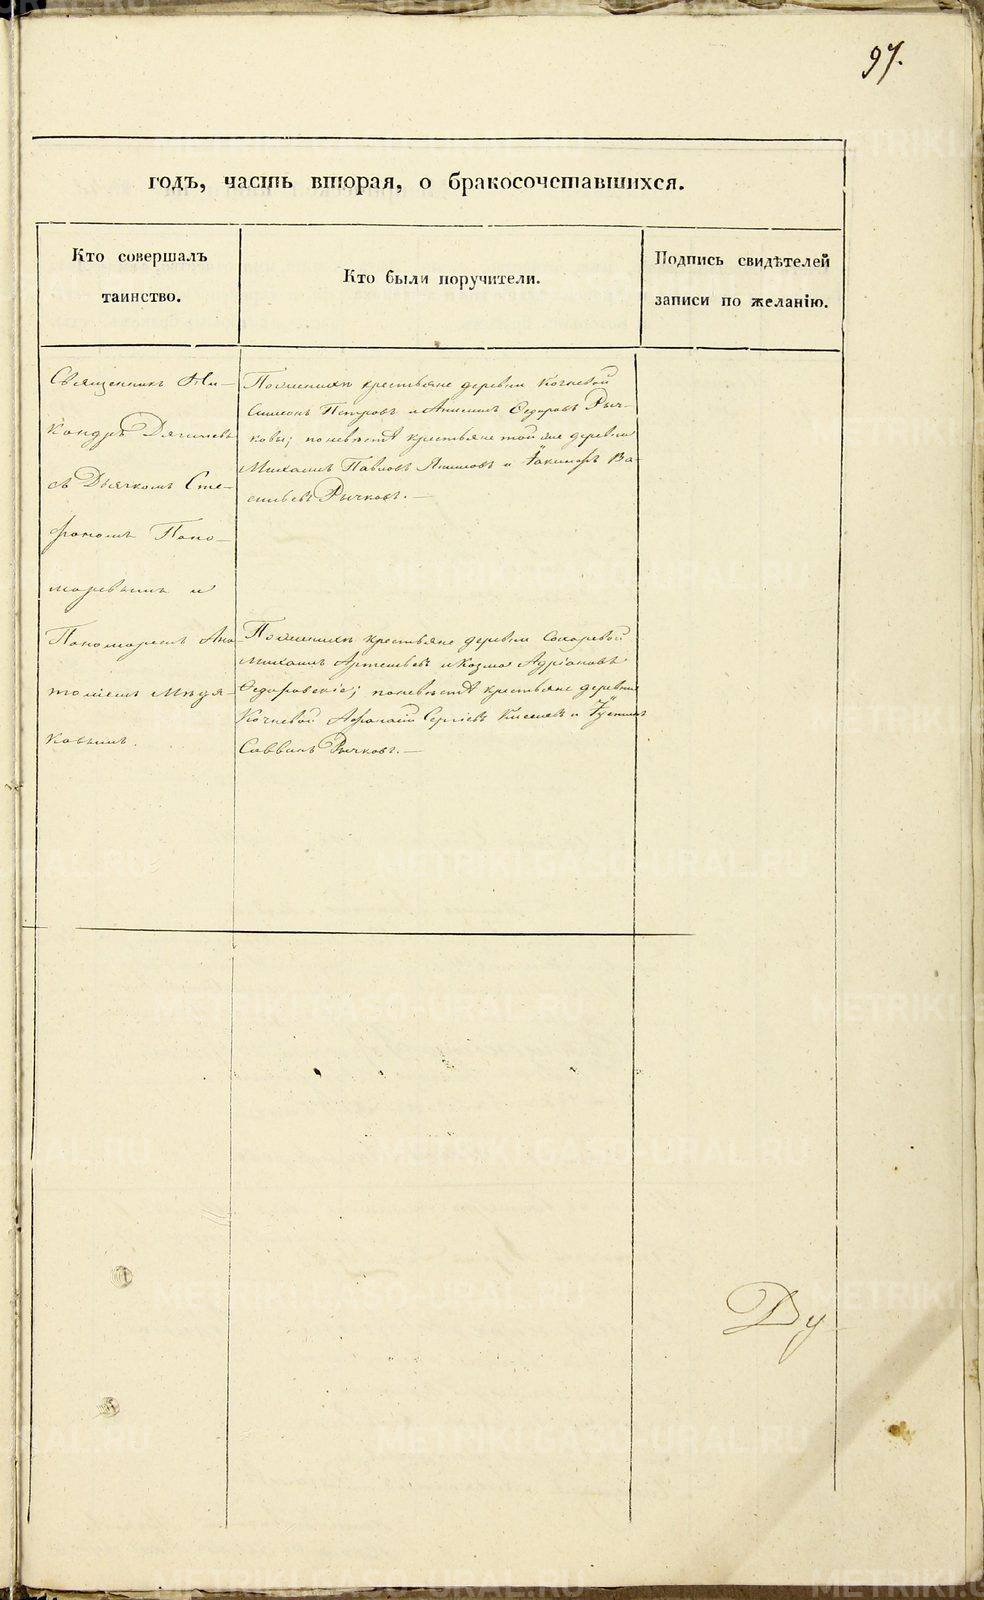 97.
годъ, часть вторая, о бракосочетавшихся.
Кто совершалъ
таинство.
Кто были поручители.
Подпись свидѣтелей
записи по желанію.
Священникъ Ни-
кандръ Дягилевъ
съ Дьячкомъ Сте-
фаномъ Поно-
маревымъ и
Пономаремъ Ана-
толіемъ
ковымъ.
По женихѣ крестьяне деревни Кочневой
Симеонъ Петровъ и Анисимъ Ѳедоровъ Рыч-
ковы; по невѣстѣ крестьяне той же деревни
Михаилъ Павловъ и Іакимъ Ва-
сильевъ Рычковъ.—
По женихѣ крестьяне деревни
Михаилъ Артемьевъ и Козма Адріановъ
Ѳедоровскіе; по невѣстѣ крестьяне деревни
Кочневой Афанасій Сергіевъ Киселевъ и
Саввинъ Рычковъ.—
Ду
METRIKI.GASO-URAL.RU